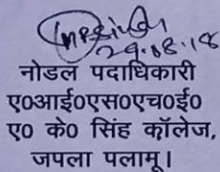 29.08.18
नोडल पदाधिकारी
ए०आई०एस०एच०ई०
ए० के० सिंह कॉलेज,
जपला पलामू।